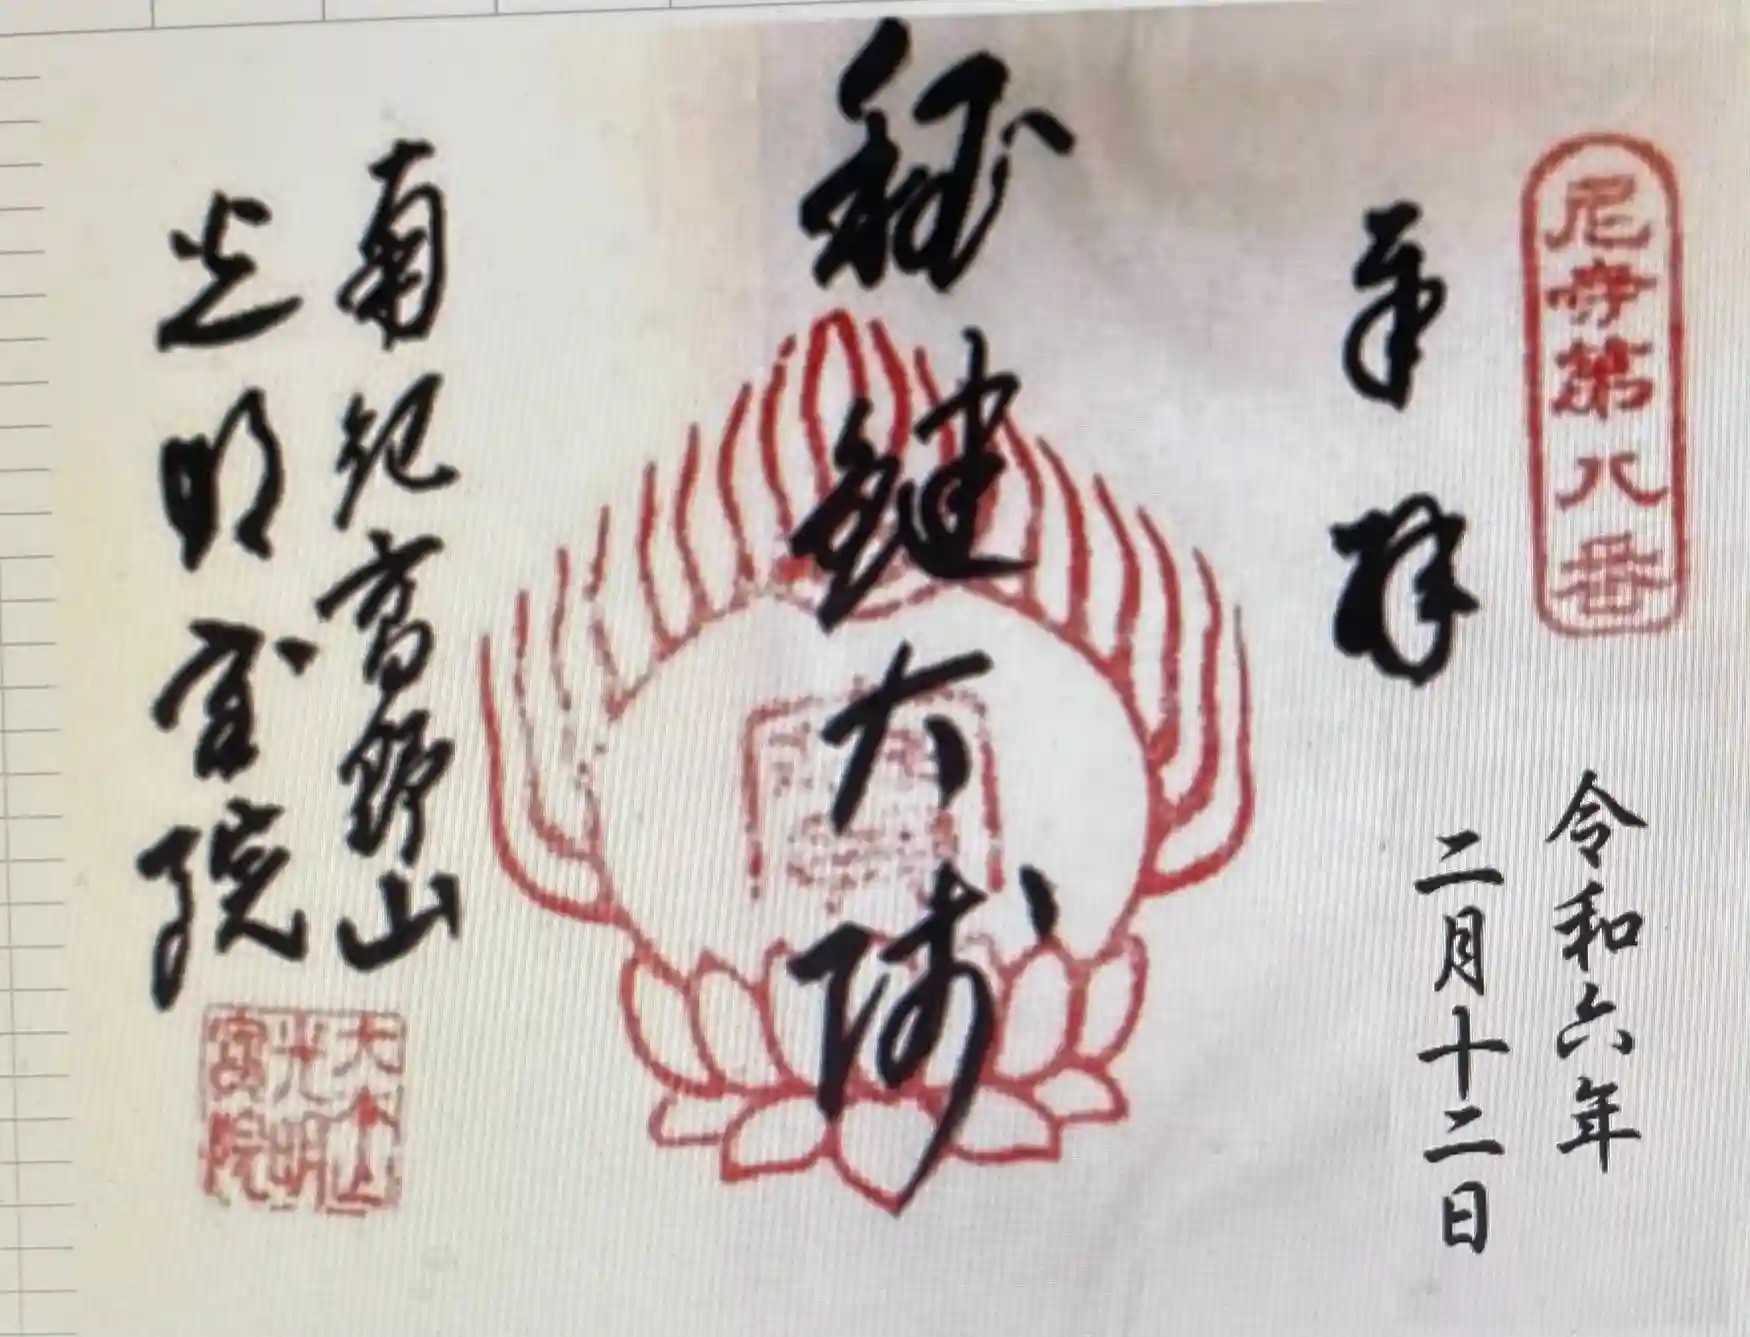 尼寺第八番
奉拝
令和六年
二月十二日
秘鍵大師
南紀高野山
光明宝院